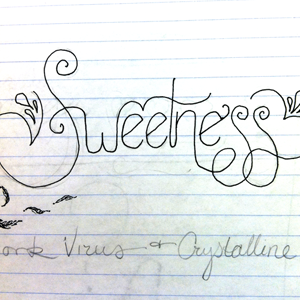 Sweetness
Virus + Crystalline